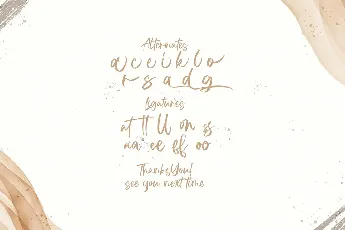 Alternates
a c e i k l o
r s a d g
Ligatures
at tt ll on is
aa ee ff oo
Thanks You!
see you next time